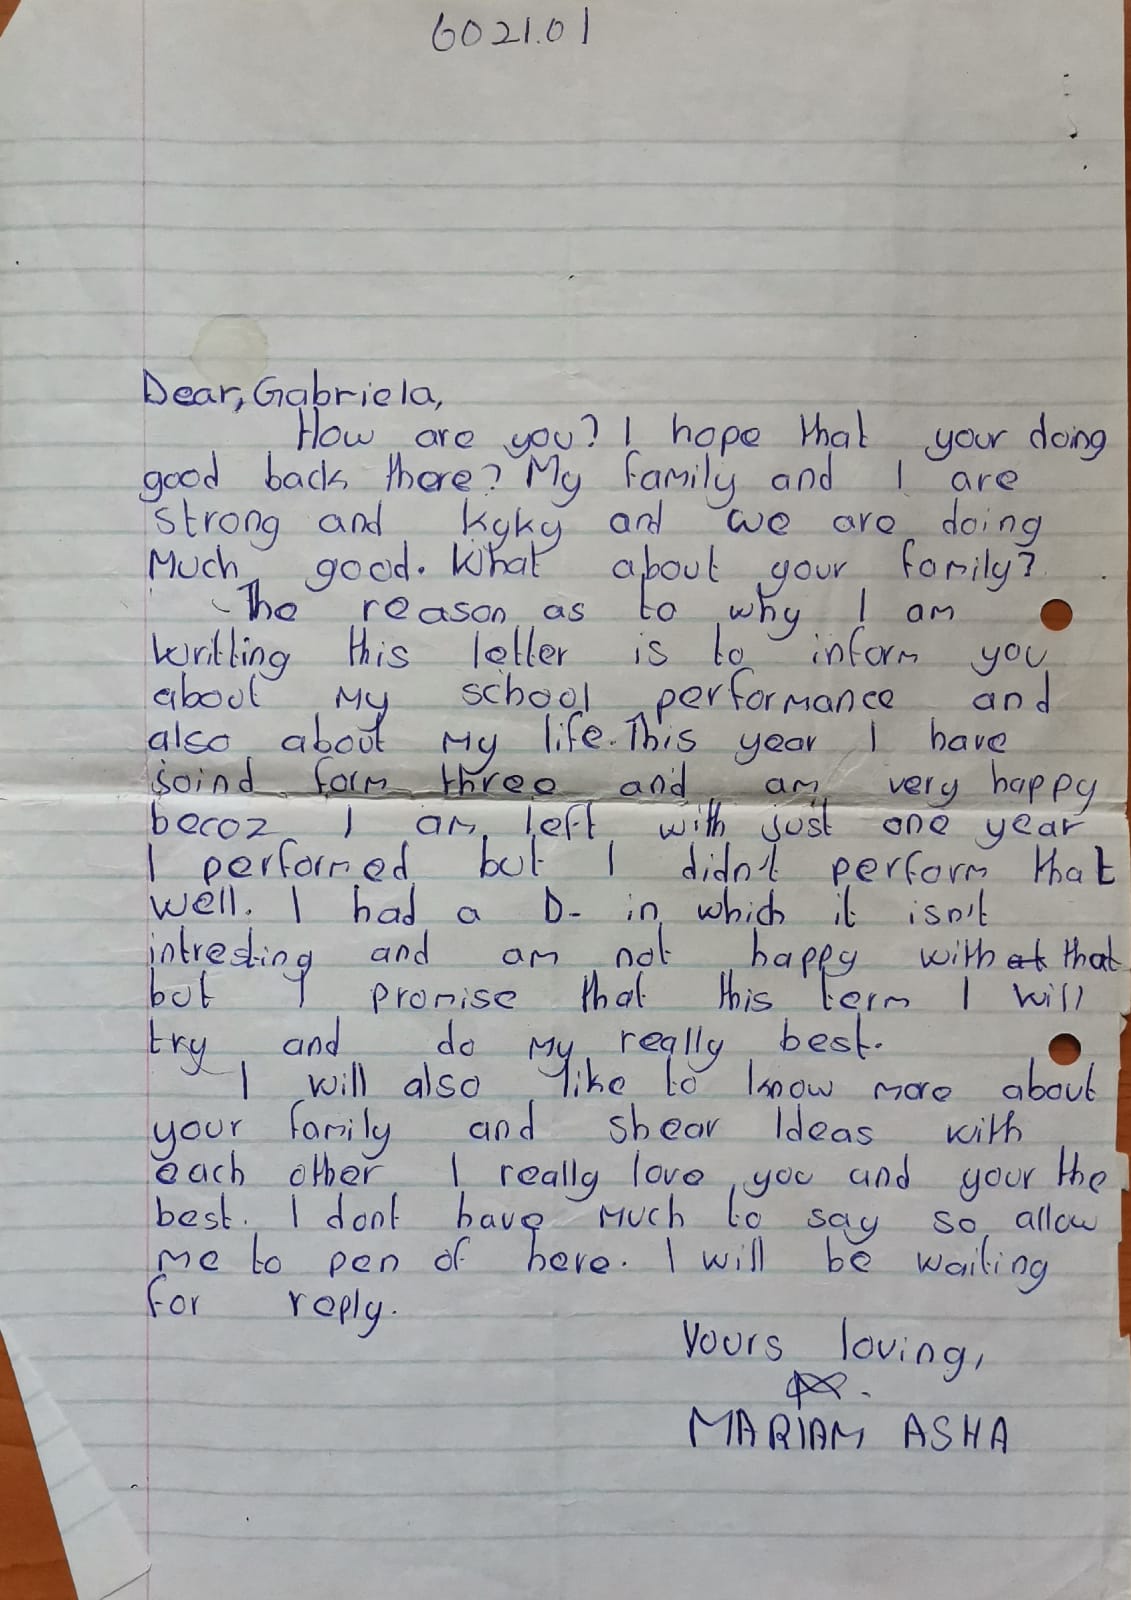 6021.01
Dear, Gabriela,
How are you? I hope that your doing
good back there? My family and I are
strong and kyky and we are doing
Much good. What about your family?
The reason as to why I am
writting this letter is to inform you
about My school performance and
also about My life. This year I have
soind form three and am very happy
becoz I am left with just one year
I performed but I didn't perform that
well. I had a D- in which it isn't
intresting and am not happy with at that
but I promise that this term I will
try and do My really best.
I will also like to know more about
your family and shear Ideas with
each other I really love you and your the
best. I dont have Much to say so allow
me to pen of here. I will be waiting
for reply.
Yours loving,
MARIAM ASHA